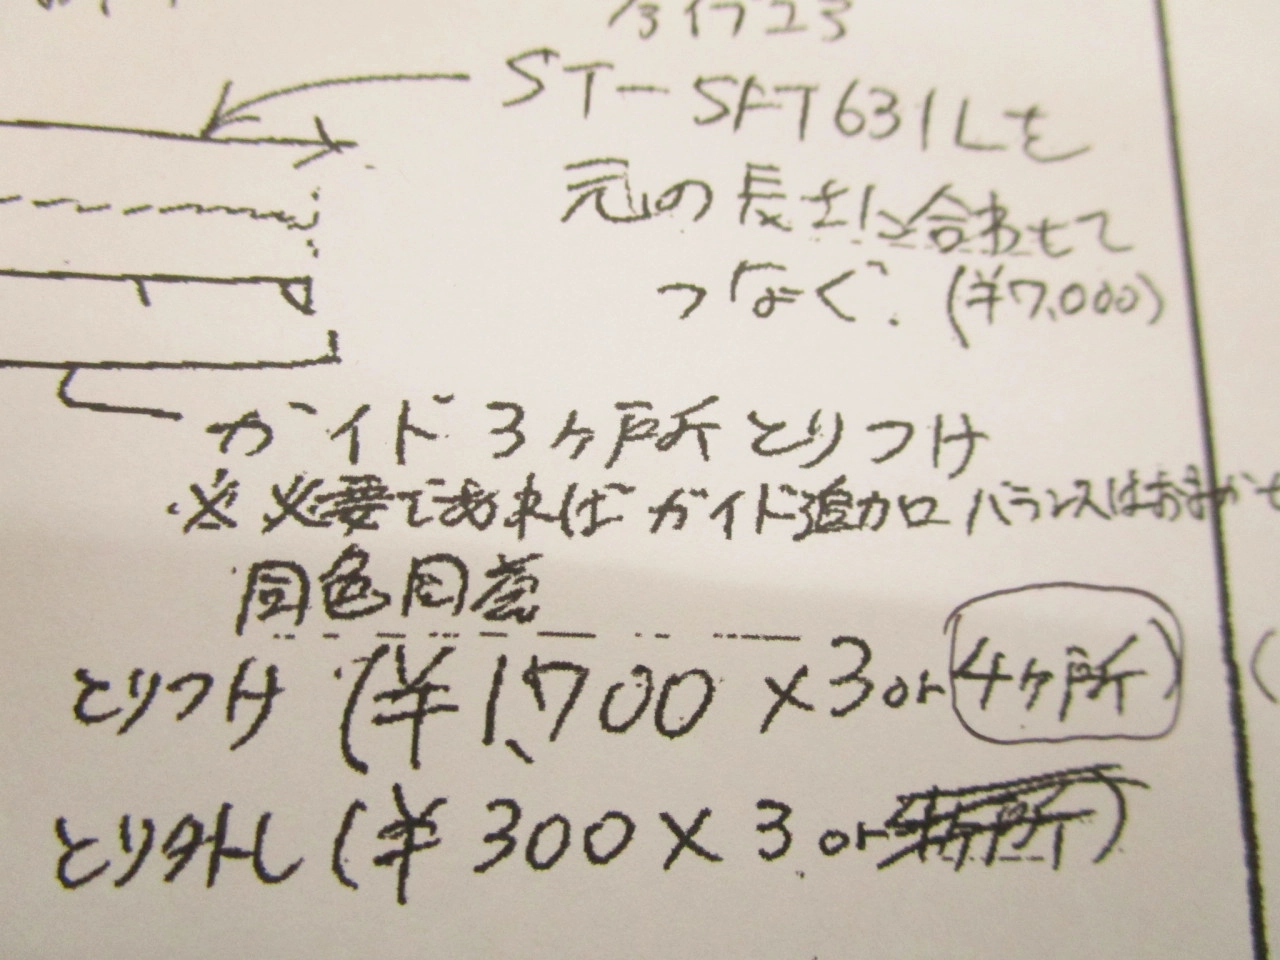 ST-SFT631Lを
元の長さに合わせて
つなぐ. (¥7,000)
ガイド3ヶ戸所とりつけ
※必要であればガイド追加 バランスはおまかせ
同色同巻
とりつけ (¥1,700×3or4ヶ所)
とり外し (¥300×3or